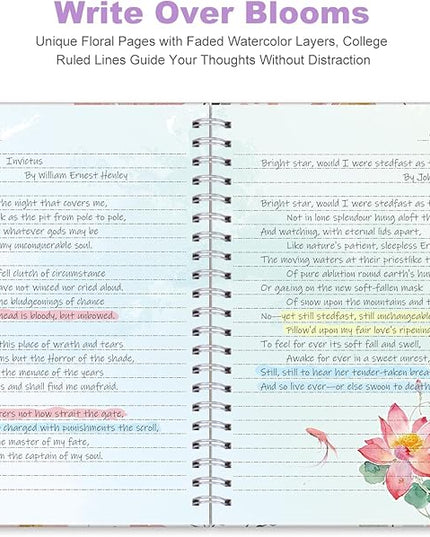 Write Over Blooms
Unique Floral Pages with Faded Watercolor Layers, College
Ruled Lines Guide Your Thoughts Without Distraction
Invictus
By William Ernest Henley
the night that covers me,
k as the pit from pole to pole,
whatever gods may be
my unconquerable soul.
fell clutch of circumstance
ave not winced nor cried aloud.
he bludgeonings of chance
head is bloody, but unbowed.
this place of wrath and tears
ms but the Horror of the shade,
the menace of the years
s and shall find me unafraid.
ers not how strait the gate,
charged with punishments the scroll,
he master of my fate,
m the captain of my soul.
Bright star, would I were stedfast as
By Joh
Bright star, would I were stedfast as
Not in lone splendour hung aloft th
And watching, with eternal lids apart,
Like nature's patient, sleepless Er
The moving waters at their priestlike t
Of pure ablution round earth's hum
Or gazing on the new soft-fallen mask
Of snow upon the mountains and t
No—yet still stedfast, still unchangeable
Pillow'd upon my fair love's ripening
To feel for ever its soft fall and swell,
Awake for ever in a sweet unrest,
Still, still to hear her tender-taken breat
And so live ever—or else swoon to death